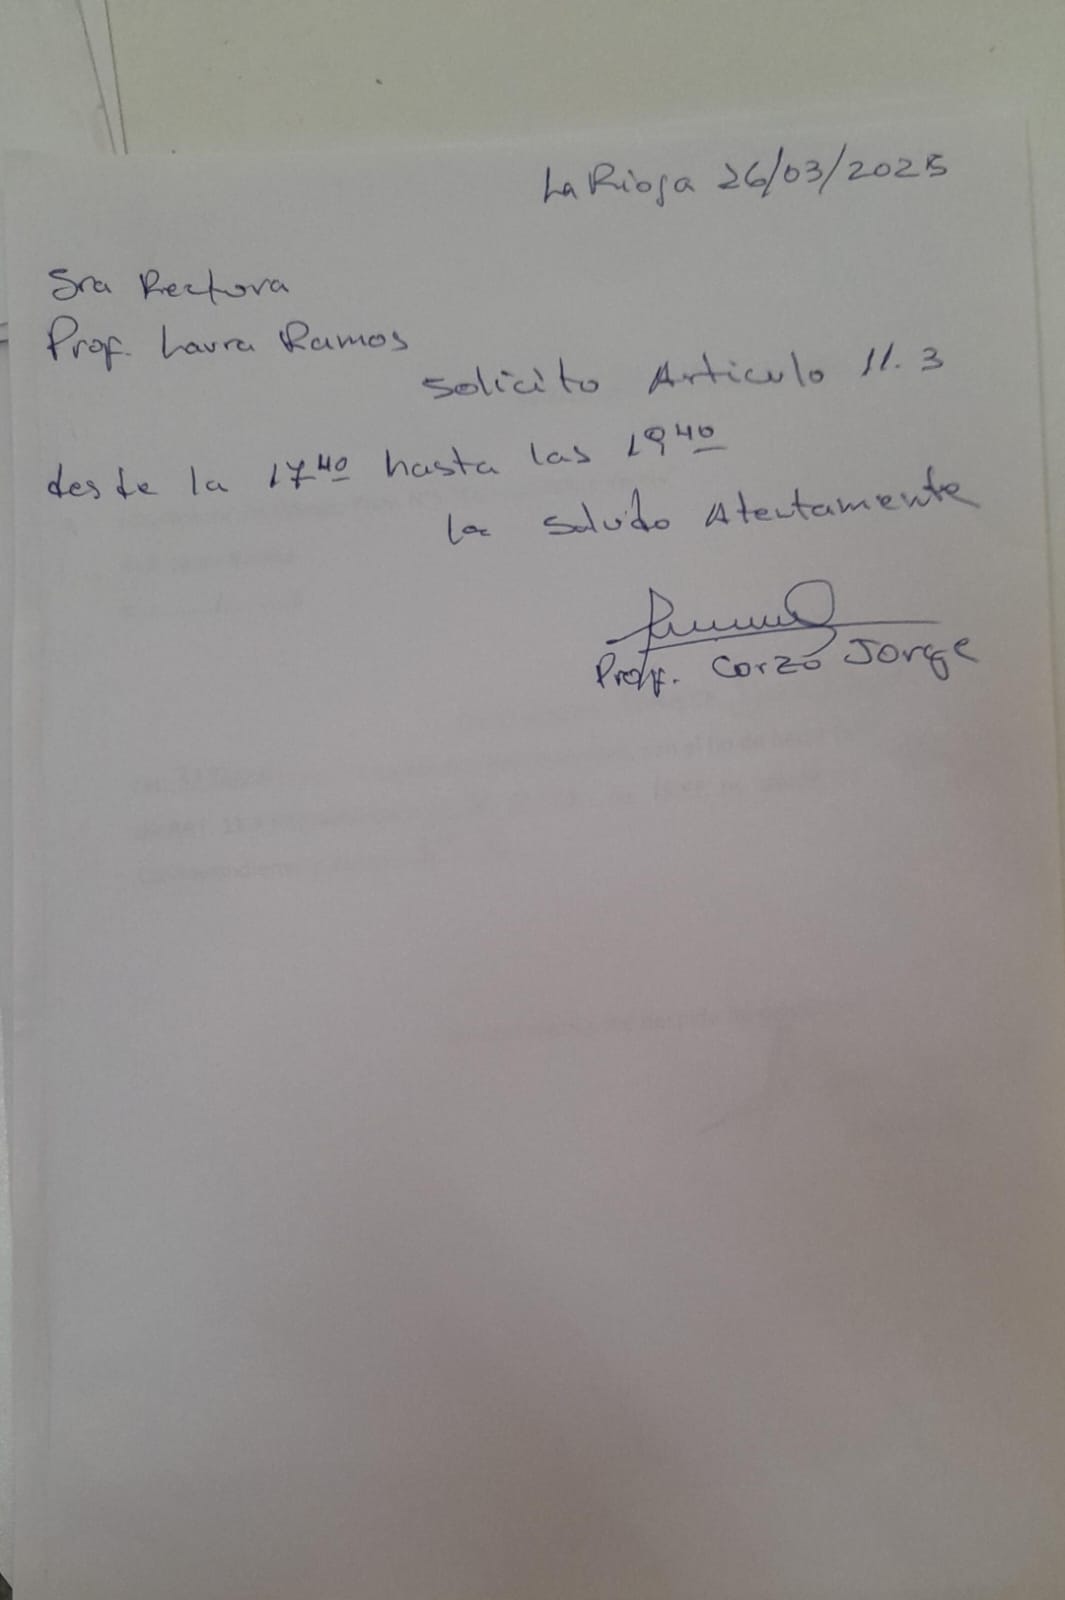 La Rioja 26/03/2025
Sra Rectora
Prof. Laura Ramos
Solicito Articulo 11.3
desde la 17 40 hasta las 19 40
la saludo Atentamente
Prof. Corzo Jorge